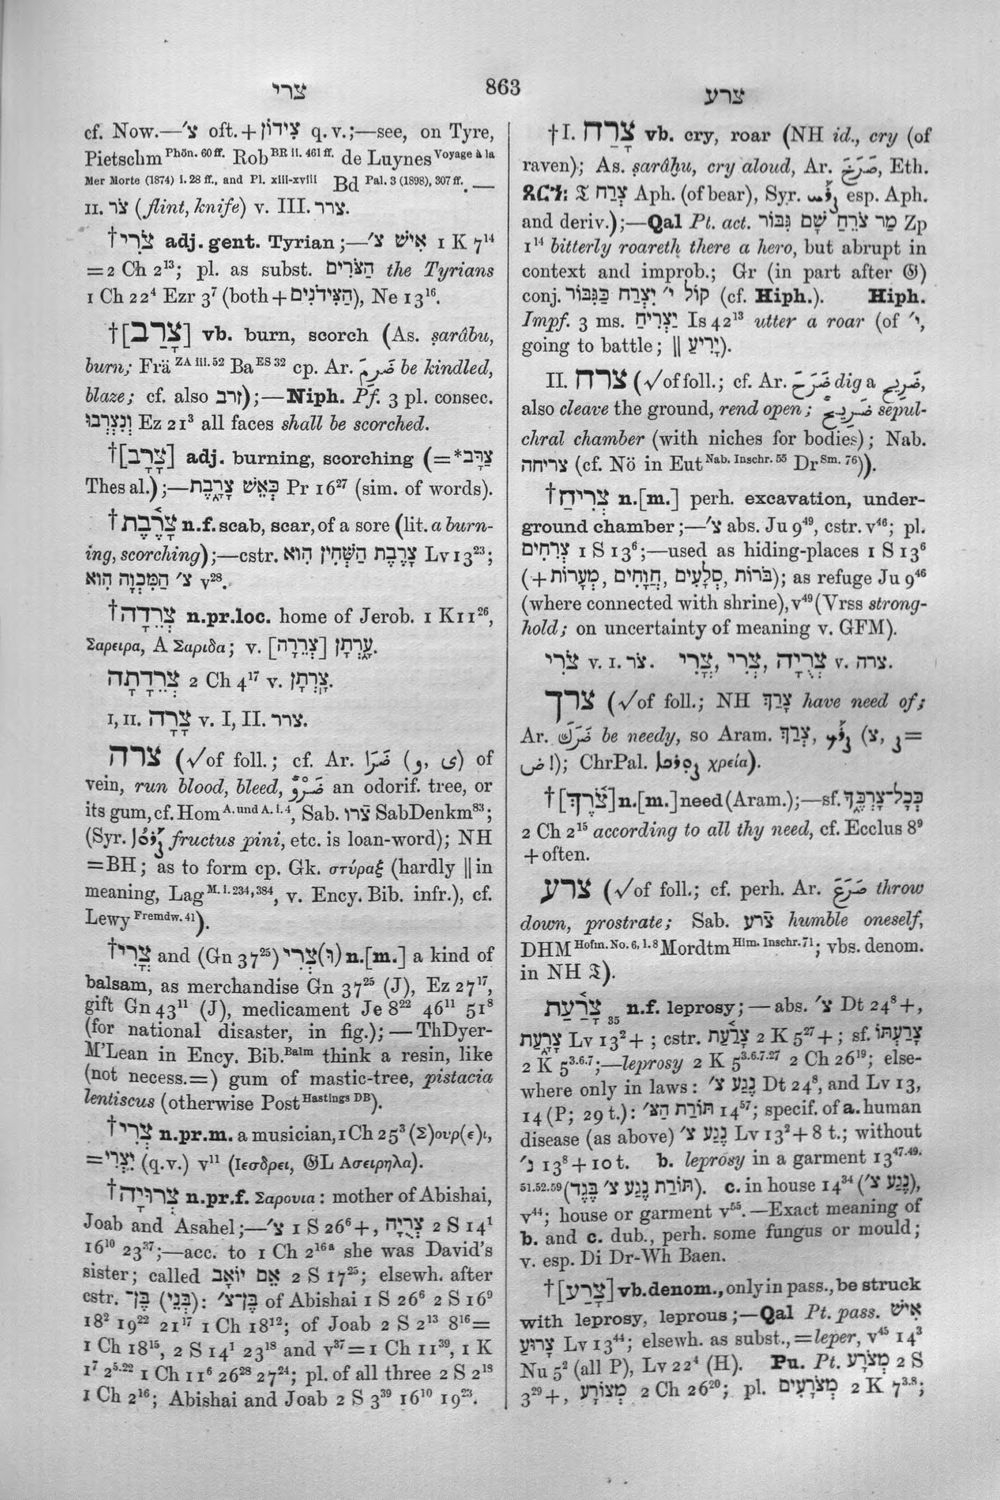 צרי
863
צרע
cf. Now.—צ׳ oft. + צִידוֹן q.v.;—see, on Tyre,
Pietschm Phön. 60 ff. Rob BR ii. 461 ff. de Luynes Voyage à la
Mer Morte (1874) i. 28 ff., and Pl. xiii-xviii Bd Pal. 3 (1898), 307 ff. —
II. צֹר (flint, knife) v. III. צרר.
† צֹרִי adj. gent. Tyrian;—אִישׁ צ׳ 1 K 7¹⁴
= 2 Ch 2¹³; pl. as subst. הַצֹּרִים the Tyrians
1 Ch 22⁴ Ezr 3⁷ (both + הַצִּידֹנִים), Ne 13¹⁶.
† [צָרַב] vb. burn, scorch (As. ṣarâbu,
burn; Frä ZA iii. 52 Ba ES 32 cp. Ar. ضَرِمَ be kindled,
blaze; cf. also זרב);—Niph. Pf. 3 pl. consec.
וְנִצְרְבוּ Ez 21³ all faces shall be scorched.
† [צָרָב] adj. burning, scorching (= *צַרָּב
Thes al.);—כְּאֵשׁ צָרָבֶת Pr 16²⁷ (sim. of words).
† צָרֶבֶת n.f. scab, scar, of a sore (lit. a burn-
ing, scorching);—cstr. צָרֶבֶת הַשְּׁחִין הִוא Lv 13²³;
צ׳ הַמִּכְוָה הִוא v²⁸.
† צְרֵדָה n.pr.loc. home of Jerob. 1 K 11²⁶,
Σαρειρα, A Σαριδα; v. [צְרֵרָה] צָרְתָן.
צְרֵדָתָה 2 Ch 4¹⁷ v. צָרְתָן.
I, II. צָרָה v. I, II. צרר.
צרה (√of foll.; cf. Ar. ضَرَا (و, ى) of
vein, run blood, bleed, ضِرْوٌ an odorif. tree, or
its gum, cf. Hom A. und A. i. 4, Sab. צרו SabDenkm⁸³;
(Syr. fructus pini, etc. is loan-word); NH
= BH; as to form cp. Gk. στύραξ (hardly ‖ in
meaning, Lag M. i. 234, 384, v. Ency. Bib. infr.), cf.
Lewy Fremdw. 41).
† צֳרִי and (Gn 37²⁵) (וּ)צְרִי n.[m.] a kind of
balsam, as merchandise Gn 37²⁵ (J), Ez 27¹⁷,
gift Gn 43¹¹ (J), medicament Je 8²² 46¹¹ 51⁸
(for national disaster, in fig.);—ThDyer-
M'Lean in Ency. Bib. Balm think a resin, like
(not necess. =) gum of mastic-tree, pistacia
lentiscus (otherwise Post Hastings DB).
† צְרִי n.pr.m. a musician, 1 Ch 25³ (Σ)ουρ(ε)ι,
= יִצְרִי (q.v.) v¹¹ (Ιεσδρει, 𝔊L Ασειρηλα).
† צְרוּיָה n.pr.f. Σαρουια: mother of Abishai,
Joab and Asahel;—צ׳ 1 S 26⁶ +, צְרֻיָה 2 S 14¹
16¹⁰ 23³⁷;—acc. to 1 Ch 2¹⁶ᵃ she was David's
sister; called אֵם יוֹאָב 2 S 17²⁵; elsewh. after
cstr. בֶּן־ (בְּנֵי): בֶּן־צ׳ of Abishai 1 S 26⁶ 2 S 16⁹
18² 19²² 21¹⁷ 1 Ch 18¹²; of Joab 2 S 2¹³ 8¹⁶ =
1 Ch 18¹⁵, 2 S 14¹ 23¹⁸ and v³⁷ = 1 Ch 11³⁹, 1 K
1⁷ 2⁵·²² 1 Ch 11⁶ 26²⁸ 27²⁴; pl. of all three 2 S 2¹⁸
1 Ch 2¹⁶; Abishai and Joab 2 S 3³⁹ 16¹⁰ 19²³.
† I. צָרַח vb. cry, roar (NH id., cry (of
raven); As. ṣarâḫu, cry aloud, Ar. صَرَخَ, Eth.
𝔗 צְרַח Aph. (of bear), Syr. esp. Aph.
and deriv.);—Qal Pt. act. מַר צֹרֵחַ שָׁם גִּבּוֹר Zp
1¹⁴ bitterly roareth there a hero, but abrupt in
context and improb.; Gr (in part after 𝔊)
conj. קוֹל י׳ יִצְרַח כַּגִּבּוֹר (cf. Hiph.). Hiph.
Impf. 3 ms. יַצְרִיחַ Is 42¹³ utter a roar (of י׳,
going to battle; ‖ יָרִיעַ).
II. צרח (√of foll.; cf. Ar. ضَرَحَ dig a ضَرِيح,
also cleave the ground, rend open; ضَرِيحٌ sepul-
chral chamber (with niches for bodies); Nab.
צריחה (cf. Nö in Eut Nab. Inschr. 55 Dr Sm. 76)).
† צְרִיחַ n.[m.] perh. excavation, under-
ground chamber;—צ׳ abs. Ju 9⁴⁹, cstr. v⁴⁶; pl.
צְרִחִים 1 S 13⁶;—used as hiding-places 1 S 13⁶
(+ בֹּרוֹת, סְלָעִים, חֲוָחִים, מְעָרוֹת); as refuge Ju 9⁴⁶
(where connected with shrine), v⁴⁹ (Vrss strong-
hold; on uncertainty of meaning v. GFM).
צֹרִי v. I. צֹר. צֳרִי, צְרִי, צְרֻיָה v. צרה.
צרך (√of foll.; NH צָרַךְ have need of;
Ar. ضَرَكَ be needy, so Aram. צְרַךְ, (צ, =
ض!); ChrPal. χρεία).
† [צֹרֶךְ] n.[m.] need (Aram.);—sf. כְּכָל־צָרְכֶּךָ
2 Ch 2¹⁵ according to all thy need, cf. Ecclus 8⁹
+ often.
צרע (√of foll.; cf. perh. Ar. صَرَعَ throw
down, prostrate; Sab. צרע humble oneself,
DHM Hofm. No. 6, 1. 8 Mordtm Him. Inschr. 71; vbs. denom.
in NH 𝔗).
צָרַעַת 35 n.f. leprosy;—abs. צ׳ Dt 24⁸ +,
צָרָעַת Lv 13² +; cstr. צָרַעַת 2 K 5²⁷ +; sf. צָרַעְתּוֹ
2 K 5³·⁶·⁷;—leprosy 2 K 5³·⁶·⁷·²⁷ 2 Ch 26¹⁹; else-
where only in laws: נֶגַע צ׳ Dt 24⁸, and Lv 13,
14 (P; 29 t.): תּוֹרַת הַצּ׳ 14⁵⁷; specif. of a. human
disease (as above) נֶגַע צ׳ Lv 13² + 8 t.; without
נ׳ 13⁸ + 10 t. b. leprosy in a garment 13⁴⁷·⁴⁹·
⁵¹·⁵²·⁵⁹ (תּוֹרַת נֶגַע צ׳ בֶּגֶד). c. in house 14³⁴ (נֶגַע צ׳),
v⁴⁴; house or garment v⁵⁵.—Exact meaning of
b. and c. dub., perh. some fungus or mould;
v. esp. Di Dr-Wh Baen.
† [צָרַע] vb. denom., only in pass., be struck
with leprosy, leprous;—Qal Pt. pass. אִישׁ
צָרוּעַ Lv 13⁴⁴; elsewh. as subst., = leper, v⁴⁵ 14³
Nu 5² (all P), Lv 22⁴ (H). Pu. Pt. מְצֹרָע 2 S
3²⁹ +, מְצוֹרָע 2 Ch 26²⁰; pl. מְצֹרָעִים 2 K 7³·⁸;